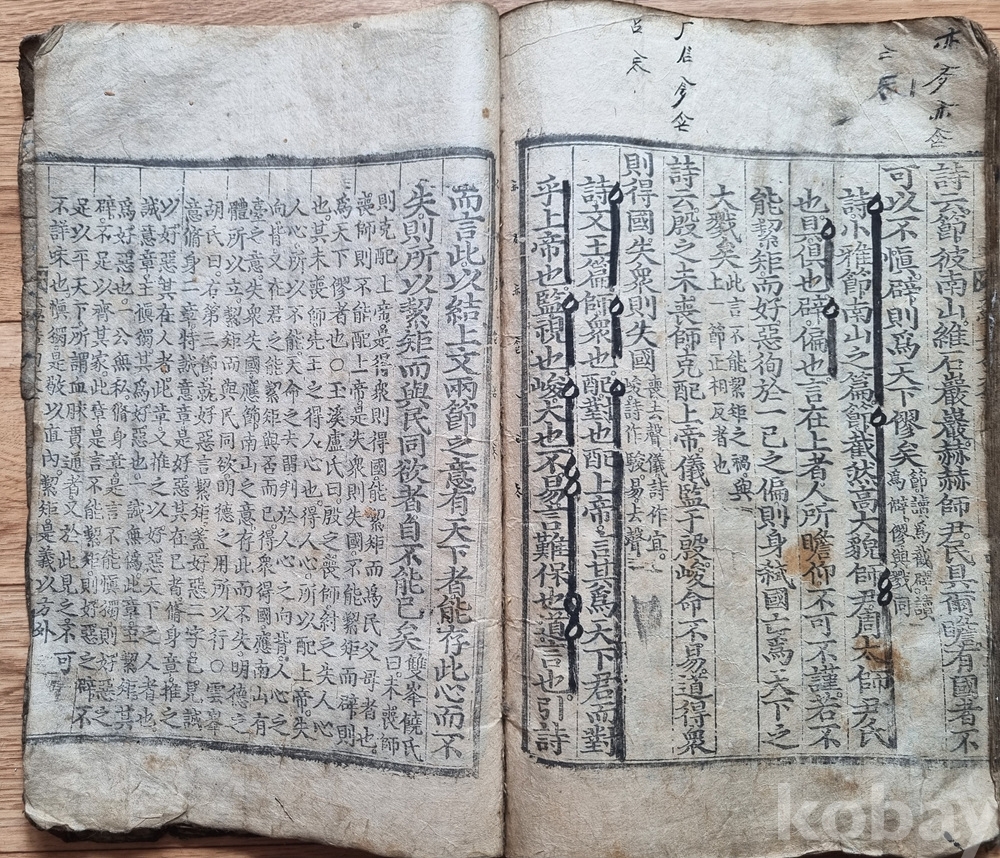 詩云節彼南山維石巖巖赫赫師尹民具爾瞻有國者不
可以不愼辟則爲天下僇矣 節讀爲截辟讀
爲僻僇與戮同
詩小雅節南山之篇節截然高大貌師尹周太師尹氏
也具俱也辟偏也言在上者人所瞻仰不可不謹若不
能絜矩而好惡徇於一己之偏則身弑國亡爲天下之
大戮矣 此言不能絜矩之禍與
上一節正相反者也
詩云殷之未喪師克配上帝儀監于殷峻命不易道得衆
則得國失衆則失國 喪去聲儀詩作宜
峻詩作駿易去聲
詩文王篇師衆也配對也配上帝言其爲天下君而對
乎上帝也監視也峻大也不易言難保也道言也引詩
而言此以結上文兩節之意有天下者能存此心而不
失則所以絜矩而與民同欲者自不能已矣 雙峯饒氏
曰未喪師
則克配上帝是得衆則得國能絜矩而爲民父母者也
喪師則不能配上帝是失衆則失國不能絜矩而辟則
爲天下僇者也○玉溪盧氏曰殷之喪師紂之失人心
也其未喪師先王之得人心也得人心所以配上帝失
人心所以不能天命之去留判於人心之向背人心之
向背又在君之能絜矩與否而已得衆得國應南山有
臺之意失衆失國應節南山之意存此而不失明德之
體所以立絜矩而與民同欲明德之用所以行○雲峯
胡氏曰右第三節就好惡言絜矩蓋好惡二字已見誠
意脩身二章特誠意章是好惡其在己者脩身章推之
以好惡其在人者此章又推之以好惡天下之人者也
誠意章主愼獨其爲好惡也一誠無僞此章主絜矩其
爲好惡也一公無私脩身章是言不能愼獨則好惡之
辟不足以齊其家此章是言不能絜矩則好惡之辟不
足以平天下所謂血脉貫通者又於此見之不可
不詳味也愼獨是敬以直內絜矩是義以方外
kobay